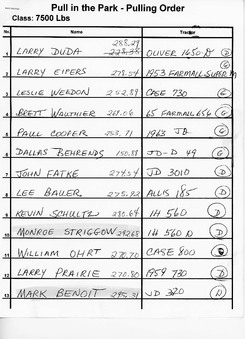 Pull in the Park - Pulling Order
Class: 7500 Lbs
No. Name Tractor
288.29
1 LARRY DUDA 228.38 OLIVER 1650 D G
2 LARRY EIPERS 278.54 1953 FARMALL SUPER M G
3 LESLIE WELDON 242.89 CASE 730 G
4 BRETT WAUTHIER 267.06 65 FARMALL 656 G
5 PAUL COOPER 253.71 1963 JD G
6 DALLAS BEHRENDS 150.88 JD-D 49 G
7 JOHN FATKE 274.54 JD 3010 D
8 LEE BAUER 275.92 ALLIS 185 D
9 KEVIN SCHULTZ 280.64 IH 560 D
10 MONROE STRIGGOW 292.68 IH 560 D D
11 WILLIAM OHRT 270.70 CASE 800
12 LARRY PRAIRIE 270.80 1959 730 D
13 MARK BENOIT 295.31 JD 320